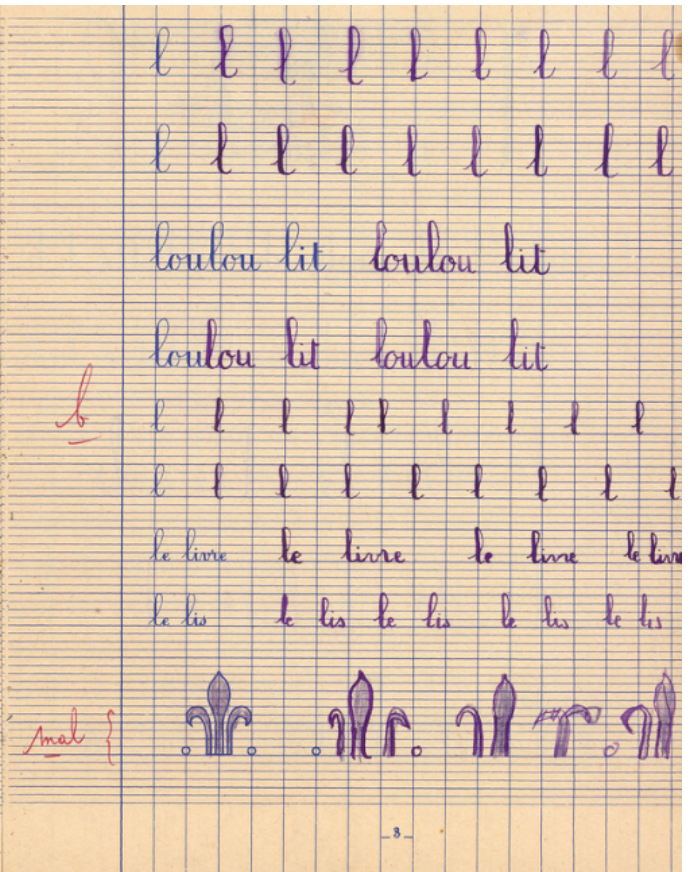 l l l l l l l l l
l l l l l l l l l
loulou lit loulou lit
loulou lit loulou lit
b l l l l l l l l l
l l l l l l l l l
le livre le livre le livre le
le lis le lis le lis le lis le lis
mal